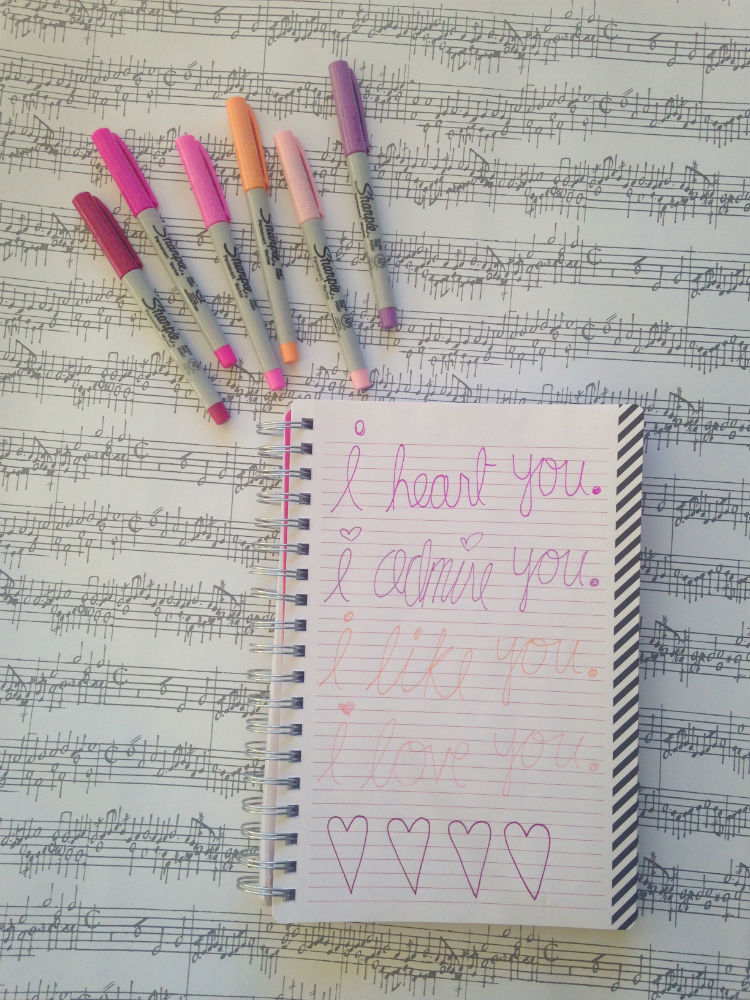 Sharpie
Sharpie
Sharpie
Sharpie
Sharpie
Sharpie
i heart you.
i admire you.
i like you.
i love you.